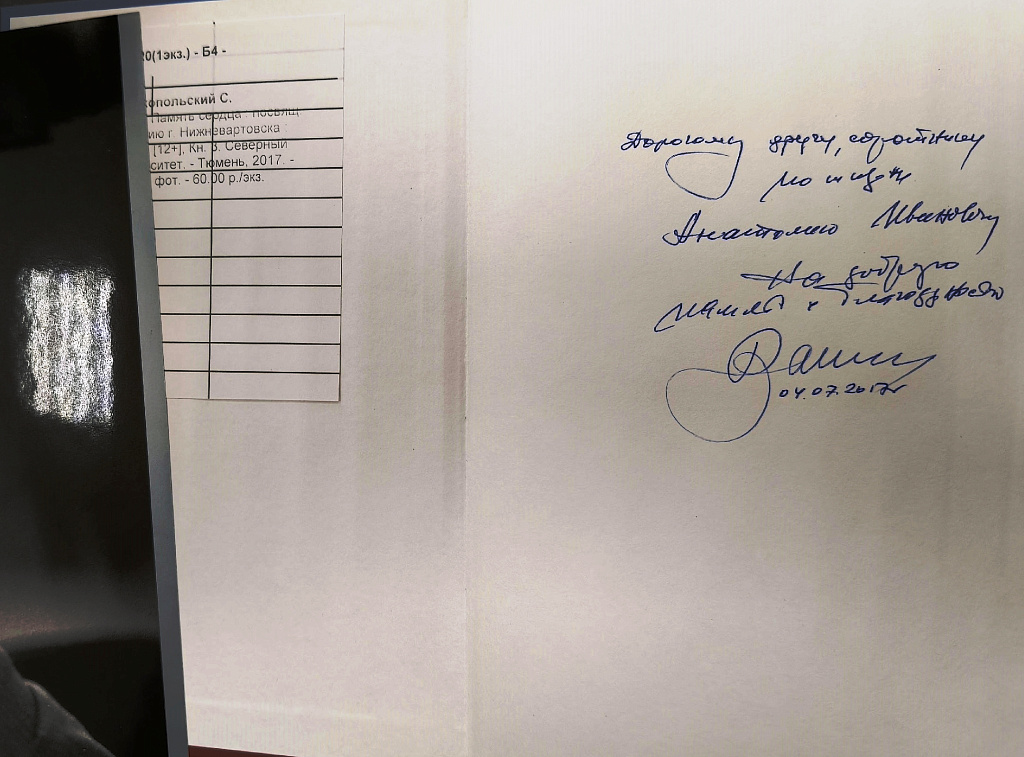 20(1экз.) - Б4 -
опольский С.
Память сердца : посвящ.
ию г. Нижневартовска
[12+], Кн. 3. Северный
ситет. - Тюмень, 2017. -
фот. - 60.00 р./экз.
Дорогому другу, соратнику
по
Анатолию Ивановичу
На добрую
память и благодарностью
04.07.2017г